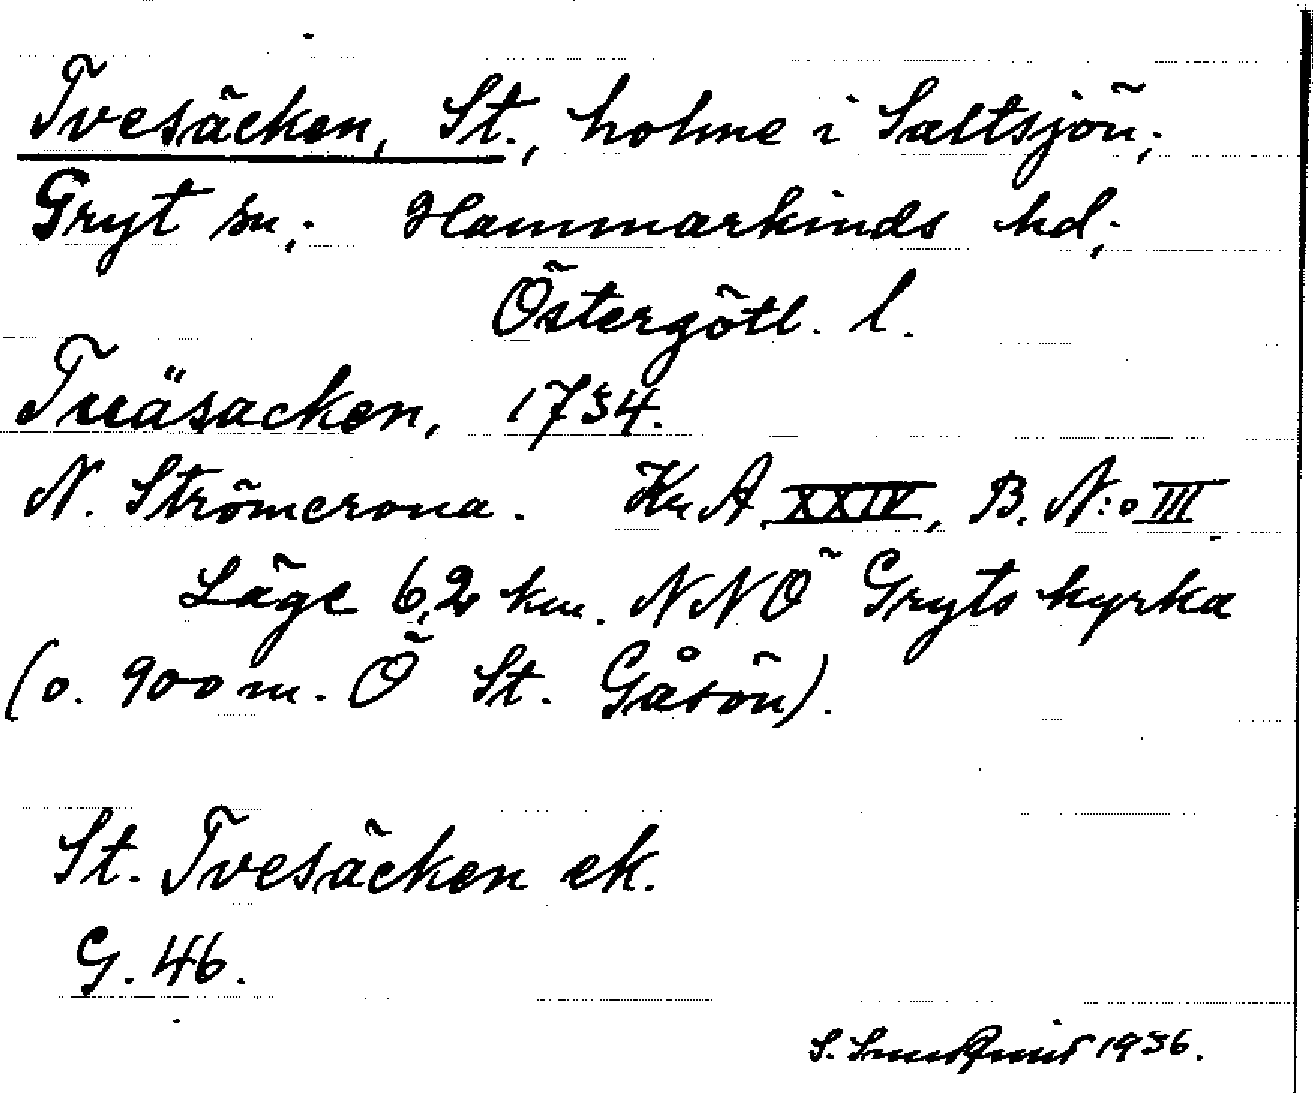 Tvesäcken, St., holme i Saltsjön;
Gryt sn,; Hammarkinds hd;
Östergötl. l.
Tuäsacken, 1734.
N. Strömcrona. Kr A. XXIV, B. N:o III
Läge 6,2 km. NNÖ Gryts kyrka
(o. 900 m. Ö St. Gåsön).
St. Tvesäcken ek.
G. 46.
S. 1936.